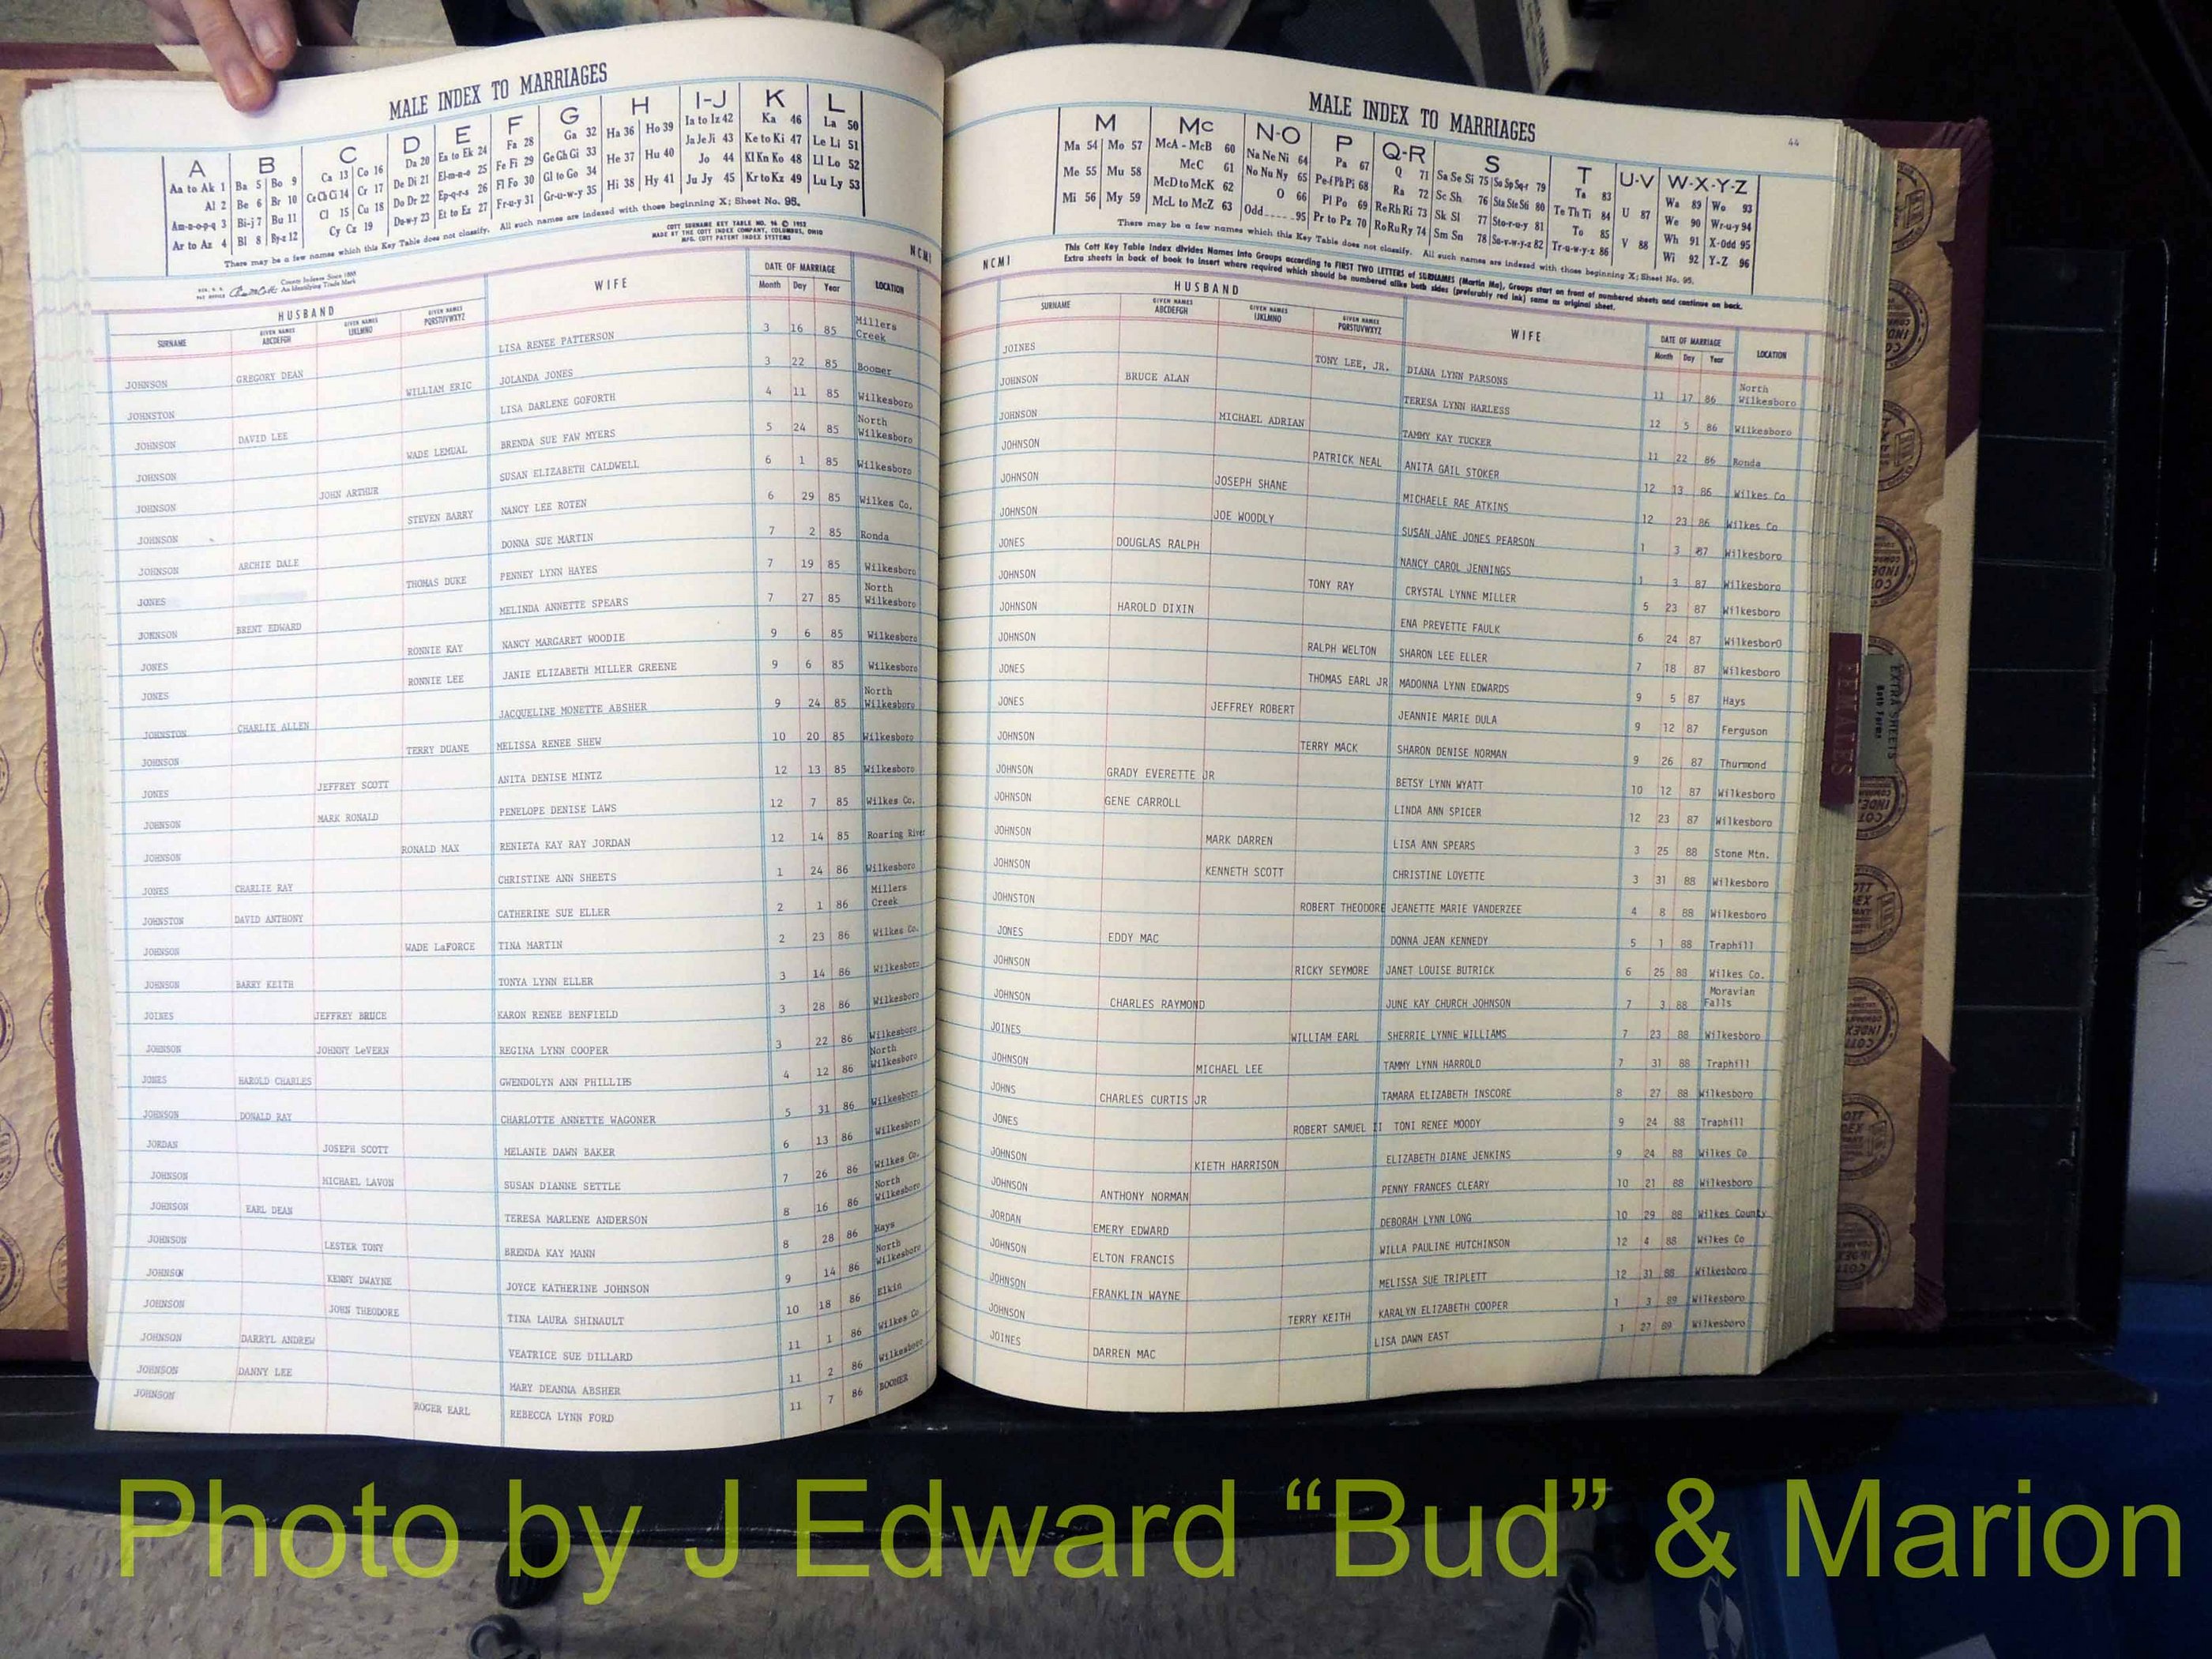 MALE INDEX TO MARRIAGES
A B C D E F G H I-J K L
Aa to Ak 1 Ba 5 Bo 9 Ca 13 Co 16 Da 20 Ea to Ek 24 Fa 28 Ga 32 Ha 36 Ho 39 Ia to Iz 42 Ka 46 La 50
Al 2 Be 6 Br 10 Ce Ch Ci 14 Cr 17 De Di 21 El-m-n-o 25 Fe Fi 29 Ge Gh Gi 33 He 37 Hu 40 Ja Je Ji 43 Ke to Ki 47 Le Li 51
Am-n-o-p-q 3 Bi-j 7 Bu 11 Cl 15 Cu 18 Do Dr 22 Ep-q-r-s 26 Fl Fo 30 Gl to Go 34 Hi 38 Hy 41 Jo 44 Kl Kn Ko 48 Ll Lo 52
Ar to Az 4 Bl 8 By-z 12 Cy Cz 19 Du-w-y 23 Et to Ez 27 Fr-u-y 31 Gr-u-w-y 35 Ju Jy 45 Kr to Kz 49 Lu Ly 53
There may be a few names which this Key Table does not classify. All such names are indexed with those beginning X; Sheet No. 95.
COTT SURNAME KEY TABLE NO. 96 © 1953
MADE BY THE COTT INDEX COMPANY, COLUMBUS, OHIO
MFG. COTT PATENT INDEX SYSTEMS
County Indexes Since 1888
An Identifying Trade Mark
NCMI
HUSBAND WIFE DATE OF MARRIAGE LOCATION
SURNAME GIVEN NAMES ABCDEFGH GIVEN NAMES IJKLMNO GIVEN NAMES PQRSTUVWXYZ Month Day Year
JOHNSON GREGORY DEAN LISA RENEE PATTERSON 3 16 85 Millers Creek
JOHNSTON WILLIAM ERIC JOLANDA JONES 3 22 85 Boomer
JOHNSON DAVID LEE LISA DARLENE GOFORTH 4 11 85 Wilkesboro
JOHNSON WADE LEMUAL BRENDA SUE FAW MYERS 5 24 85 North Wilkesboro
JOHNSON JOHN ARTHUR SUSAN ELIZABETH CALDWELL 6 1 85 Wilkesboro
JOHNSON STEVEN BARRY NANCY LEE ROTEN 6 29 85 Wilkes Co.
JOHNSON ARCHIE DALE DONNA SUE MARTIN 7 2 85 Ronda
JONES THOMAS DUKE PENNEY LYNN HAYES 7 19 85 Wilkesboro
JOHNSON BRENT EDWARD MELINDA ANNETTE SPEARS 7 27 85 North Wilkesboro
JONES RONNIE KAY NANCY MARGARET WOODIE 9 6 85 Wilkesboro
JONES RONNIE LEE JANIE ELIZABETH MILLER GREENE 9 6 85 Wilkesboro
JOHNSTON CHARLIE ALLEN JACQUELINE MONETTE ABSHER 9 24 85 North Wilkesboro
JOHNSON TERRY DUANE MELISSA RENEE SHEW 10 20 85 Wilkesboro
JONES JEFFREY SCOTT ANITA DENISE MINTZ 12 13 85 Wilkesboro
JOHNSON MARK RONALD PENELOPE DENISE LAWS 12 7 85 Wilkes Co.
JOHNSON RONALD MAX RENIETA KAY RAY JORDAN 12 14 85 Roaring River
JONES CHARLIE RAY CHRISTINE ANN SHEETS 1 24 86 Wilkesboro
JOHNSTON DAVID ANTHONY CATHERINE SUE ELLER 2 1 86 Millers Creek
JOHNSON WADE LaFORCE TINA MARTIN 2 23 86 Wilkes Co.
JOHNSON BARRY KEITH TONYA LYNN ELLER 3 14 86 Wilkesboro
JOINES JEFFREY BRUCE KARON RENEE BENFIELD 3 28 86 Wilkesboro
JOHNSON JOHNNY LeVERN REGINA LYNN COOPER 3 22 86 Wilkesboro
JONES HAROLD CHARLES GWENDOLYN ANN PHILLIPS 4 12 86 North Wilkesboro
JOHNSON DONALD RAY CHARLOTTE ANNETTE WAGONER 5 31 86 Wilkesboro
JORDAN JOSEPH SCOTT MELANIE DAWN BAKER 6 13 86 Wilkesboro
JOHNSON MICHAEL LAVON SUSAN DIANNE SETTLE 7 26 86 Wilkes Co.
JOHNSON EARL DEAN TERESA MARLENE ANDERSON 8 16 86 North Wilkesboro
JOHNSON LESTER TONY BRENDA KAY MANN 8 28 86 Hays
JOHNSON KENNY DWAYNE JOYCE KATHERINE JOHNSON 9 14 86 North Wilkesboro
JOHNSON JOHN THEODORE TINA LAURA SHINAULT 10 18 86 Elkin
JOHNSON DARRYL ANDREW VEATRICE SUE DILLARD 11 1 86 Wilkes Co
JOHNSON DANNY LEE MARY DEANNA ABSHER 11 2 86 Wilkesboro
JOHNSON ROGER EARL REBECCA LYNN FORD 11 7 86 BOOMER
MALE INDEX TO MARRIAGES
44
M Mc N-O P Q-R S T U-V W-X-Y-Z
Ma 54 Mo 57 McA - McB 60 Na Ne Ni 64 Pa 67 Q 71 Sa Se Si 75 So Sp Sq-r 79 Ta 83 U 87 Wa 89 Wo 93
Me 55 Mu 58 McC 61 No Nu Ny 65 Pe-f Ph Pi 68 Ra 72 Sc Sh 76 Sta Ste Sti 80 Te Th Ti 84 V 88 We 90 Wr-u-y 94
Mi 56 My 59 McD to McK 62 O 66 Pl Po 69 Re Rh Ri 73 Sk Sl 77 Sto-r-u-y 81 To 85 Wh 91 X-Odd 95
McL to McZ 63 Odd 95 Pr to Pz 70 Ro Ru Ry 74 Sm Sn 78 Su-v-w-y-z 82 Tr-u-w-y-z 86 Wi 92 Y-Z 96
There may be a few names which this Key Table does not classify. All such names are indexed with those beginning X; Sheet No. 95.
This Cott Key Table Index divides Names into Groups according to FIRST TWO LETTERS of SURNAMES (Martin Ma), Groups start on front of numbered sheets and continue on back.
Extra sheets in back of book to insert where required which should be numbered alike both sides (preferably red ink) same as original sheet.
NCMI
HUSBAND WIFE DATE OF MARRIAGE LOCATION
SURNAME GIVEN NAMES ABCDEFGH GIVEN NAMES IJKLMNO GIVEN NAMES PQRSTUVWXYZ Month Day Year
JOINES TONY LEE, JR. DIANA LYNN PARSONS 11 17 86 North Wilkesboro
JOHNSON BRUCE ALAN TERESA LYNN HARLESS 12 5 86 Wilkesboro
JOHNSON MICHAEL ADRIAN TAMMY KAY TUCKER 11 22 86 Ronda
JOHNSON PATRICK NEAL ANITA GAIL STOKER 12 13 86 Wilkes Co
JOHNSON JOSEPH SHANE MICHAELE RAE ATKINS 12 23 86 Wilkes Co
JOHNSON JOE WOODLY SUSAN JANE JONES PEARSON 1 3 87 Wilkesboro
JONES DOUGLAS RALPH NANCY CAROL JENNINGS 1 3 87 Wilkesboro
JOHNSON TONY RAY CRYSTAL LYNNE MILLER 5 23 87 Wilkesboro
JOHNSON HAROLD DIXIN ENA PREVETTE FAULK 6 24 87 WilkesborO
JOHNSON RALPH WELTON SHARON LEE ELLER 7 18 87 Wilkesboro
JONES THOMAS EARL JR MADONNA LYNN EDWARDS 9 5 87 Hays
JONES JEFFREY ROBERT JEANNIE MARIE DULA 9 12 87 Ferguson
JOHNSON TERRY MACK SHARON DENISE NORMAN 9 26 87 Thurmond
JOHNSON GRADY EVERETTE JR BETSY LYNN WYATT 10 12 87 Wilkesboro
JOHNSON GENE CARROLL LINDA ANN SPICER 12 23 87 Wilkesboro
JOHNSON MARK DARREN LISA ANN SPEARS 3 25 88 Stone Mtn.
JOHNSON KENNETH SCOTT CHRISTINE LOVETTE 3 31 88 Wilkesboro
JOHNSTON ROBERT THEODORE JEANETTE MARIE VANDERZEE 4 8 88 Wilkesboro
JONES EDDY MAC DONNA JEAN KENNEDY 5 1 88 Traphill
JOHNSON RICKY SEYMORE JANET LOUISE BUTRICK 6 25 88 Wilkes Co.
JOHNSON CHARLES RAYMOND JUNE KAY CHURCH JOHNSON 7 3 88 Moravian Falls
JOINES WILLIAM EARL SHERRIE LYNNE WILLIAMS 7 23 88 Wilkesboro
JOHNSON MICHAEL LEE TAMMY LYNN HARROLD 7 31 88 Traphill
JOHNS CHARLES CURTIS JR TAMARA ELIZABETH INSCORE 8 27 88 Wilkesboro
JONES ROBERT SAMUEL II TONI RENEE MOODY 9 24 88 Traphill
JOHNSON KIETH HARRISON ELIZABETH DIANE JENKINS 9 24 88 Wilkes Co
JOHNSON ANTHONY NORMAN PENNY FRANCES CLEARY 10 21 88 Wilkesboro
JORDAN EMERY EDWARD DEBORAH LYNN LONG 10 29 88 Wilkes County
JOHNSON ELTON FRANCIS WILLA PAULINE HUTCHINSON 12 4 88 Wilkes Co
JOHNSON FRANKLIN WAYNE MELISSA SUE TRIPLETT 12 31 88 Wilkesboro
JOHNSON TERRY KEITH KARALYN ELIZABETH COOPER 1 3 89 Wilkesboro
JOINES DARREN MAC LISA DAWN EAST 1 27 89 Wilkesboro
FEMALES
EXTRA SHEETS
Both Forms
Photo by J Edward “Bud” & Marion